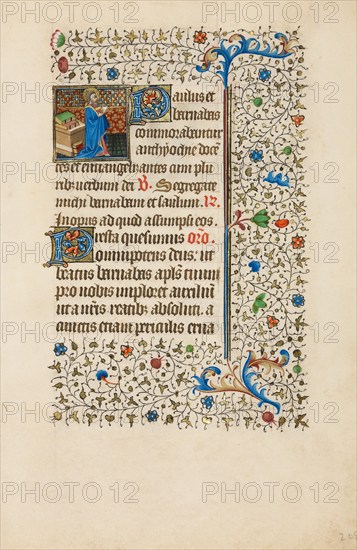 Paulus et
barnabas
commorabantur
anthyoche docē
tes et euuangelyantes cum pluribz uerbum dei V. Segregate
michi barnabam et saulum. R.
In opus ad quod assumpsi eos.
Presta quesumus oro.
omnipotens deus: ut
beatus barnabas apls tuum
pro nobis imploret auxiliū
ut a nris reatibz absoluti. a
cunctis etiam periculis erua
PHOTO12